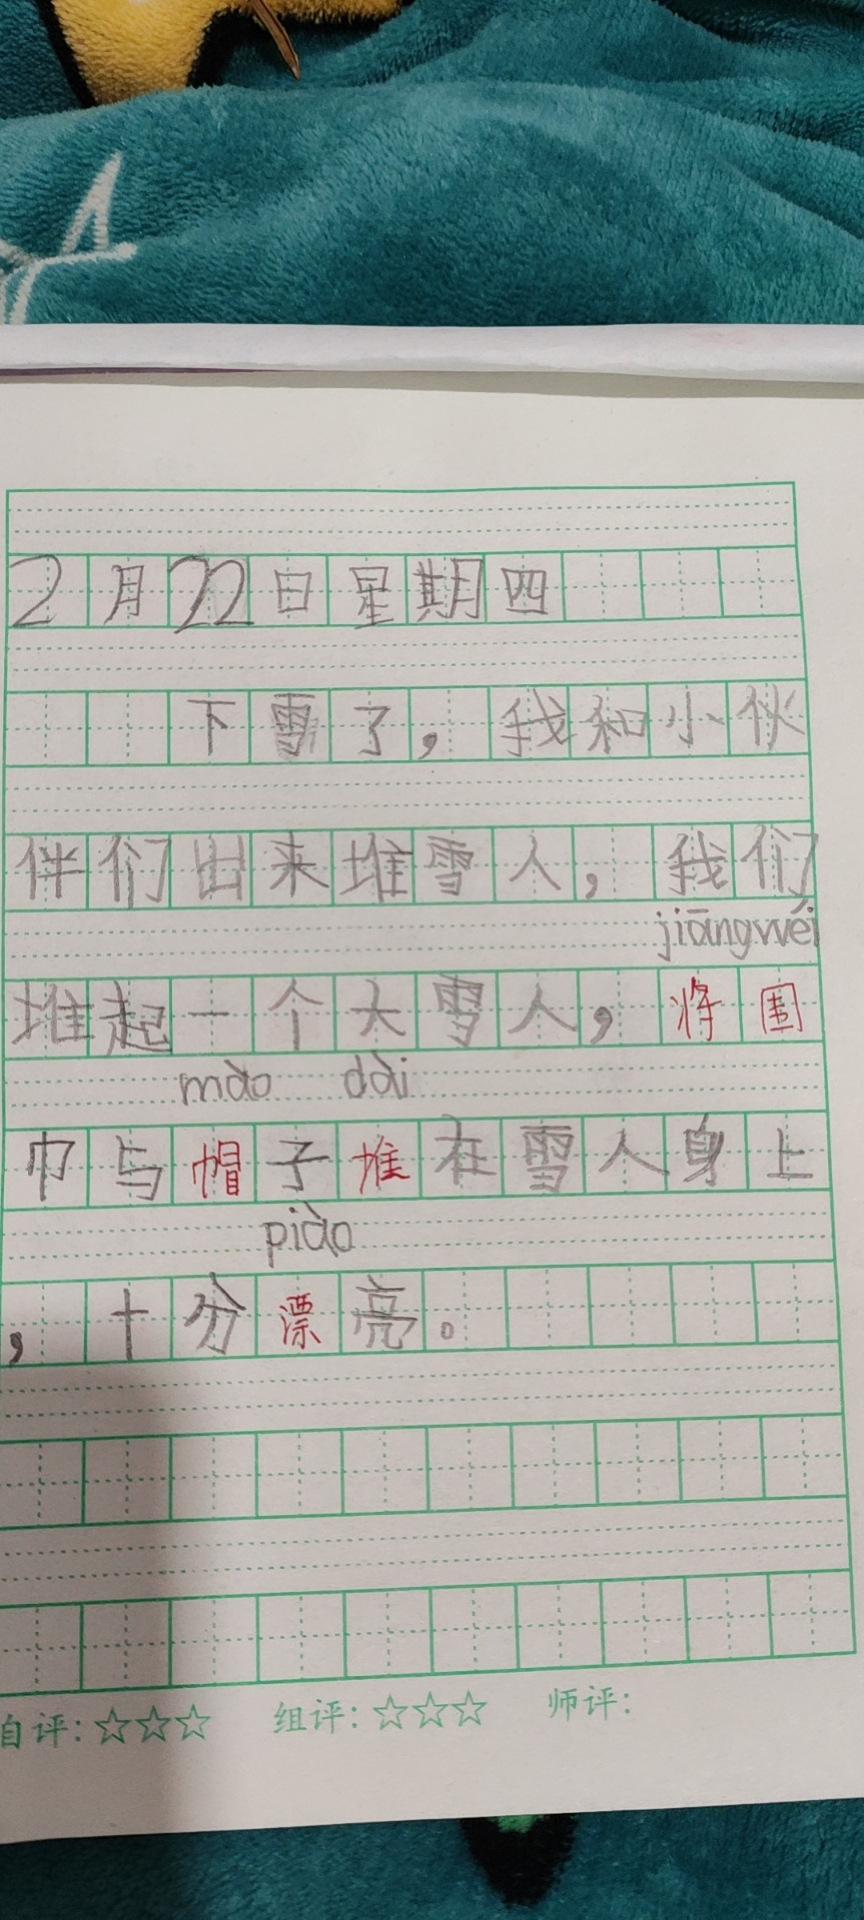 2月22日星期四
下雪了，我和小伙
伴们出来堆雪人，我们
jiāngwéi
堆起一个大雪人，将围
mào dài
巾与帽子堆在雪人身上
piào
，十分漂亮。
自评：☆☆☆ 组评：☆☆☆ 师评：